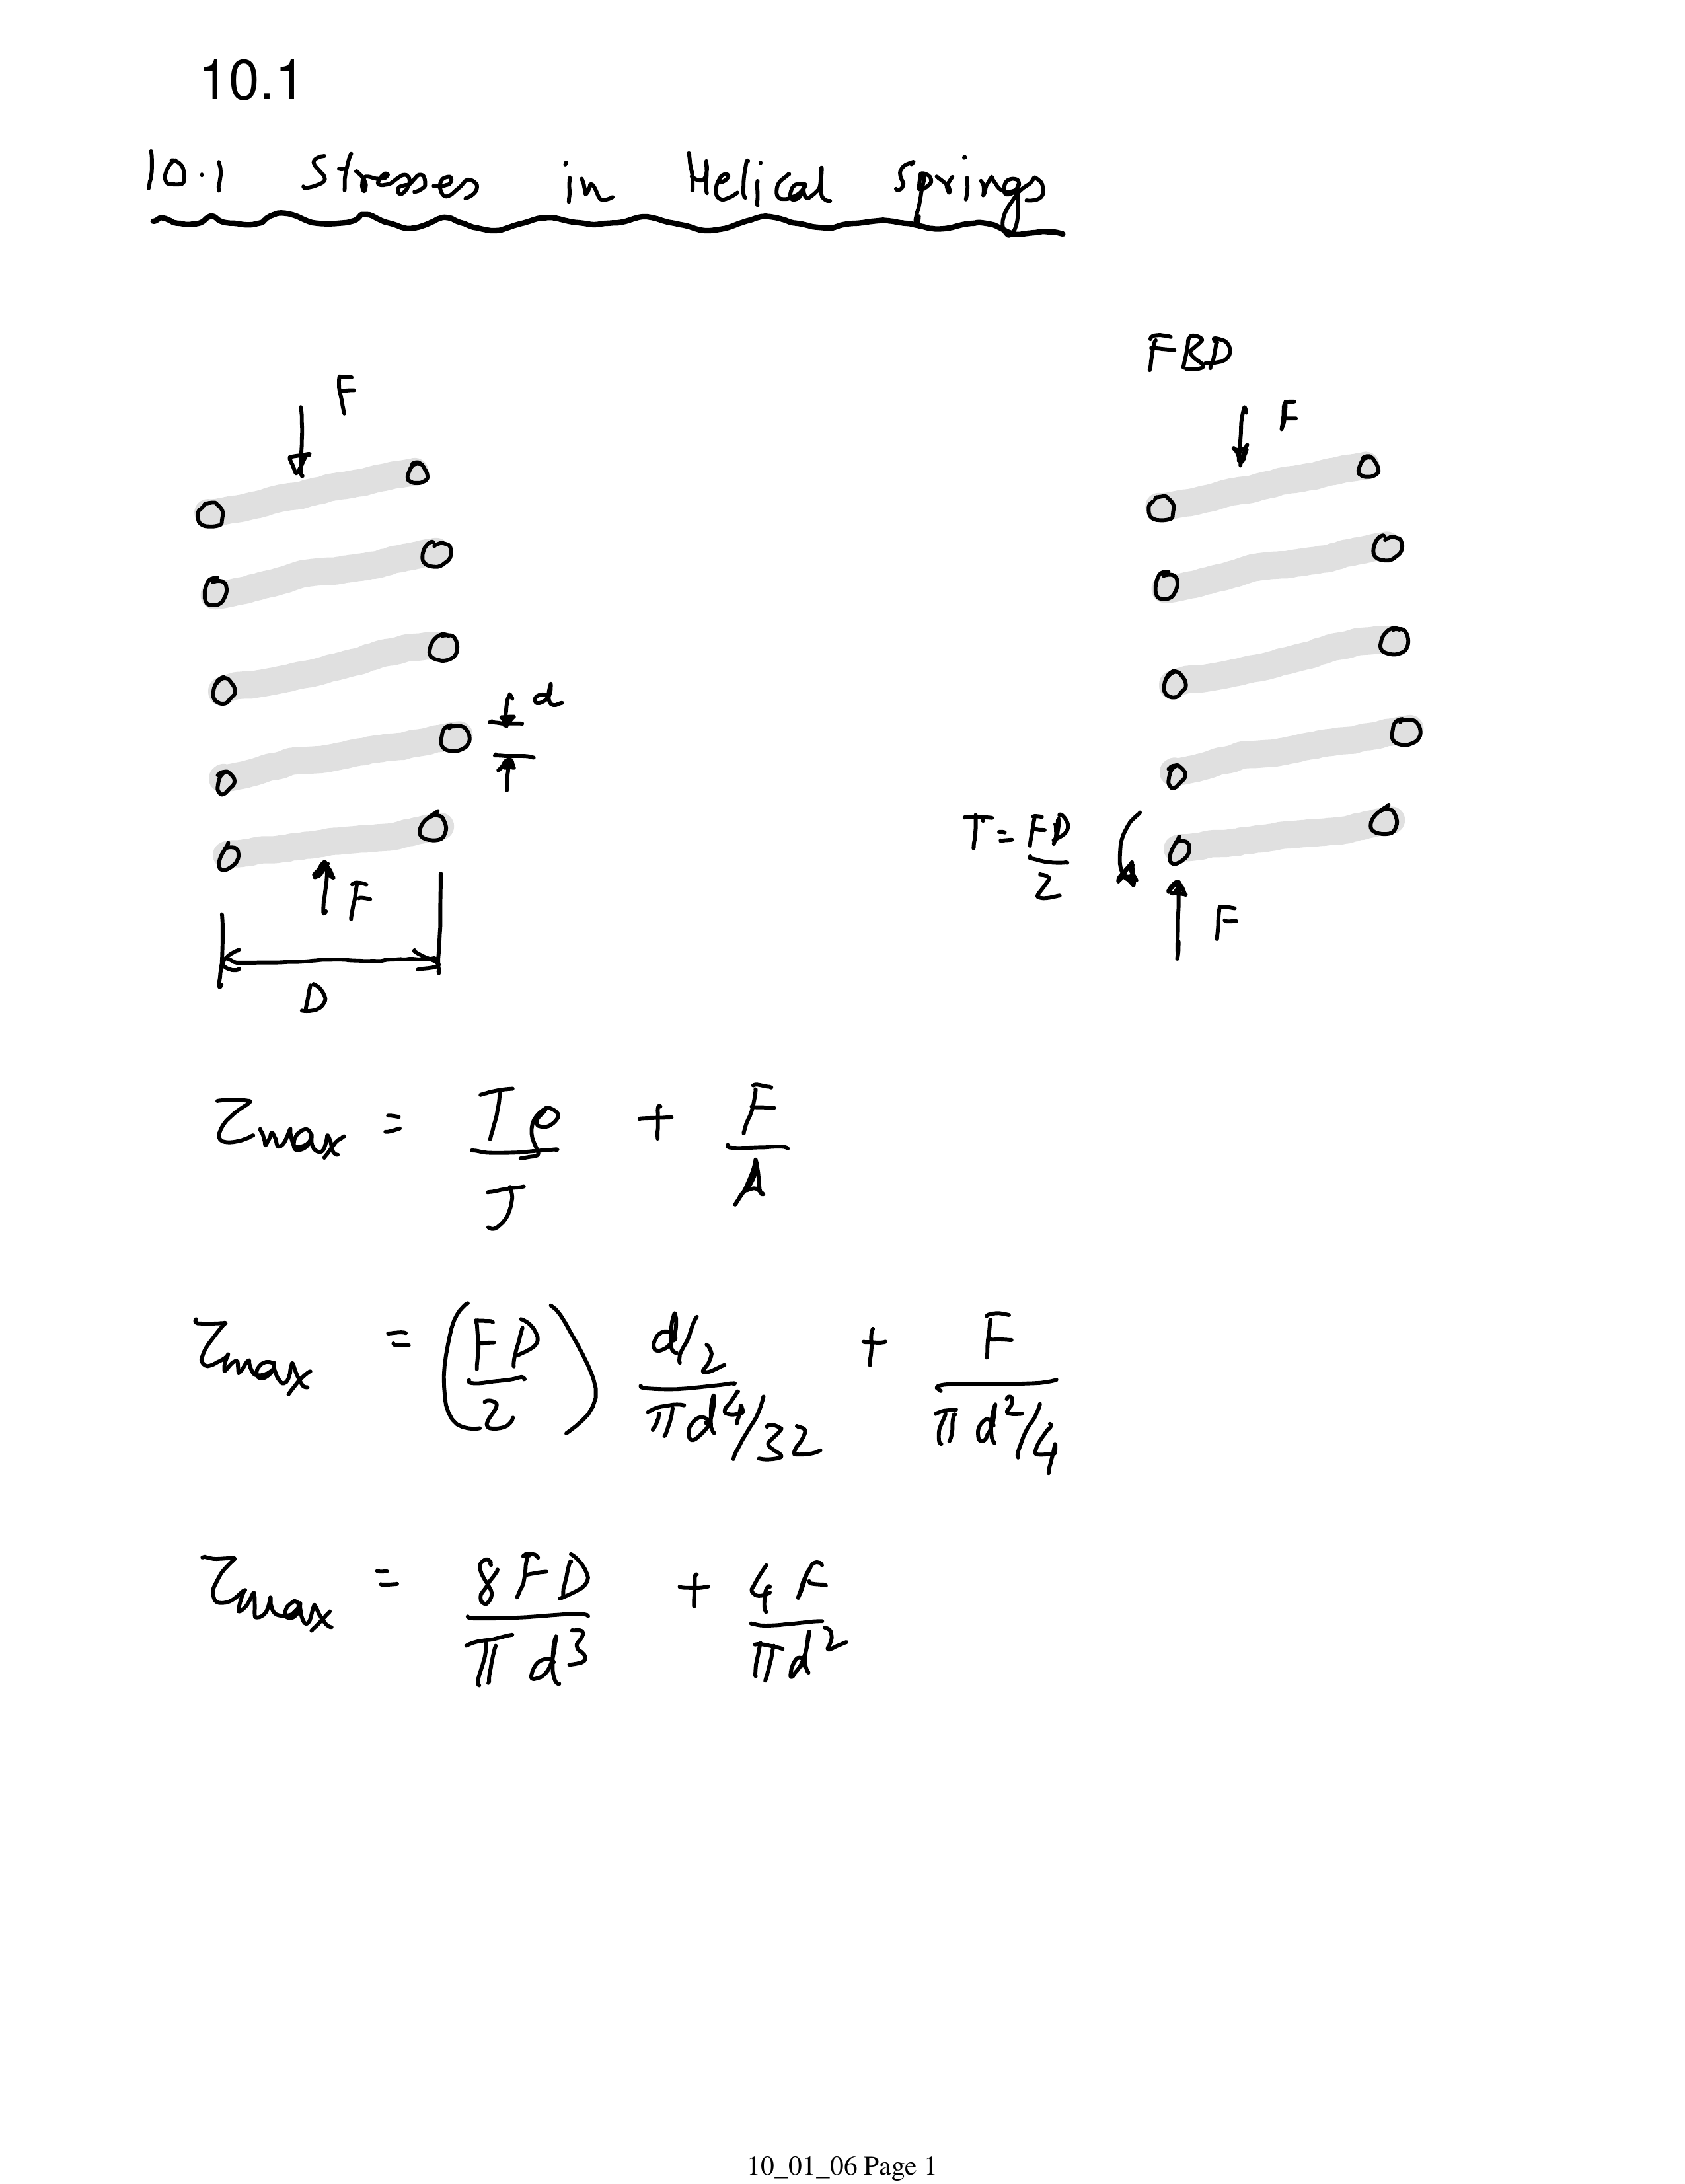 10.1
10.1 Stresses in Helical Springs
FBD
F
F
d
T = FD/2
F
F
D
τmax = Tρ/J + F/A
τmax = (FD/2) (d/2)/(πd⁴/32) + F/(πd²/4)
τmax = 8FD/(πd³) + 4F/(πd²)
10_01_06 Page 1